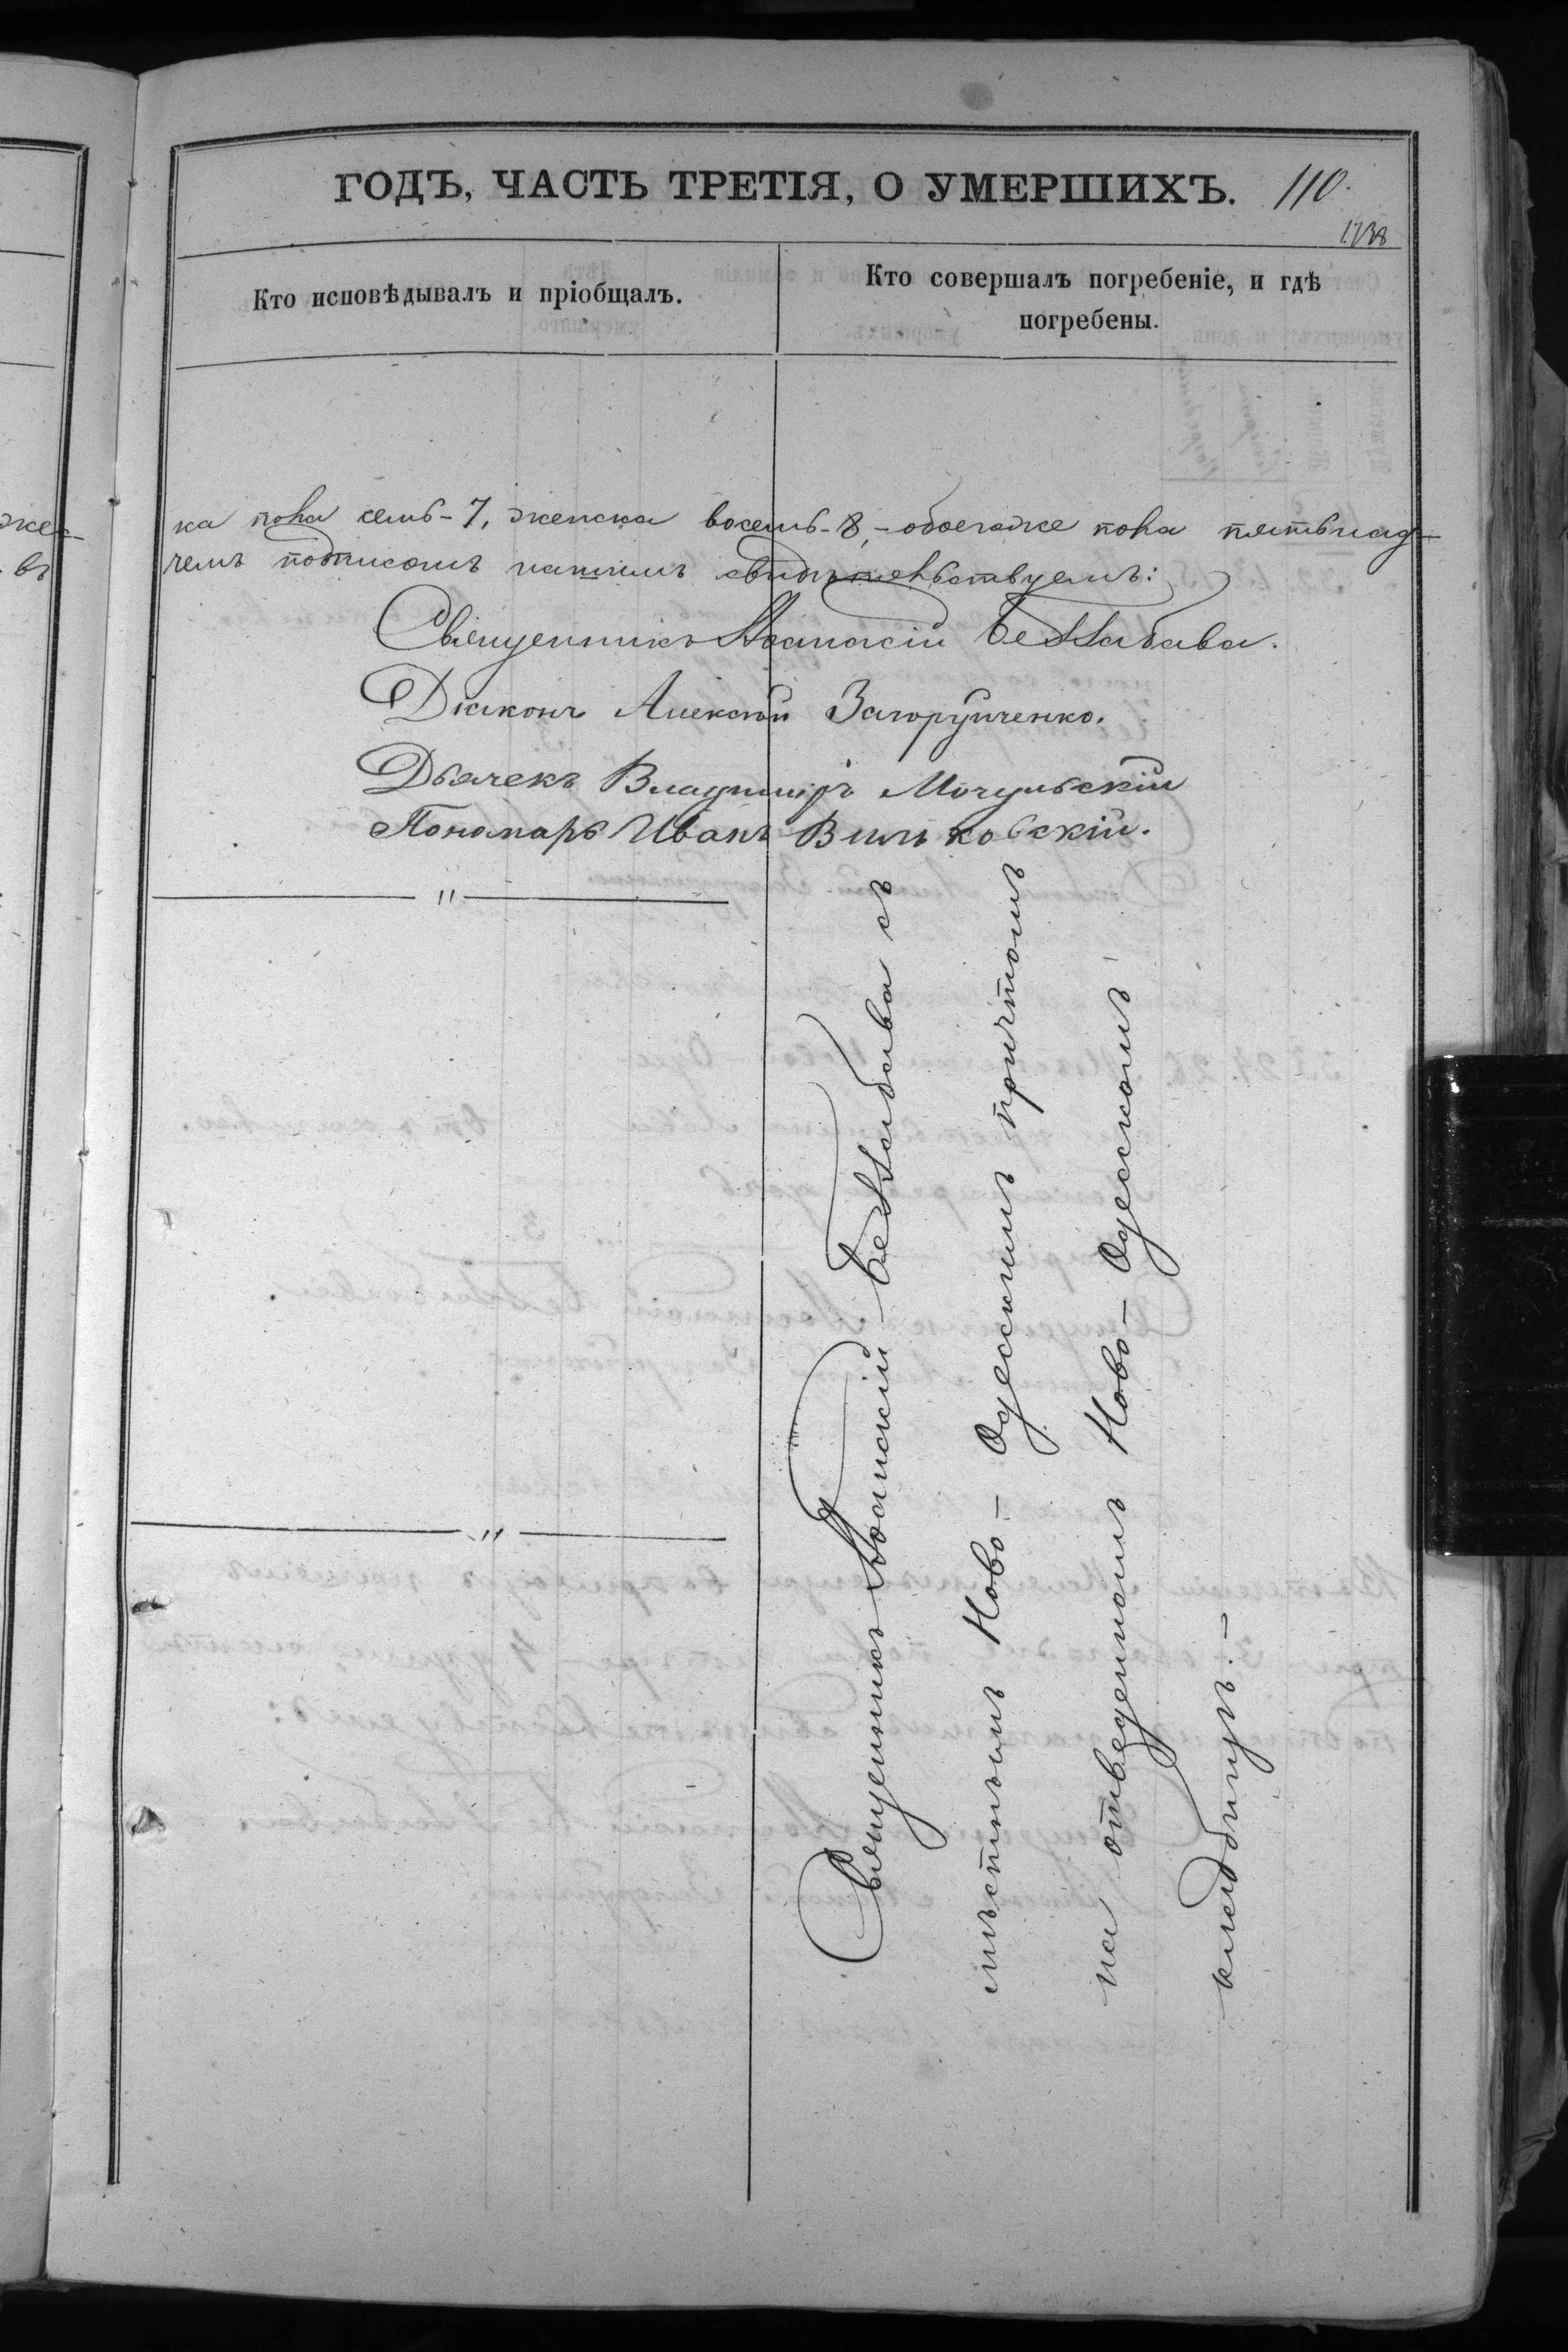 ГОДЪ, ЧАСТЬ ТРЕТІЯ, О УМЕРШИХЪ. 110.
Кто исповѣдывалъ и пріобщалъ.
Кто совершалъ погребеніе, и гдѣ
погребены.
ка пола семь-7, женска восемь-8,-обоегоже пола пятьнад-
чемъ подписомъ нашимъ свидѣтельствуемъ:
Священникъ Аѳанасій
Діаконъ Алексѣй Загорульченко.
Дьячекъ Владиміръ Мочульскій
Пономарь Иванъ
Священникъ Аѳанасій съ
мѣстнымъ Ново-Одесскимъ причтомъ
на отведенномъ Ново-Одесскомъ
кладбищѣ.-